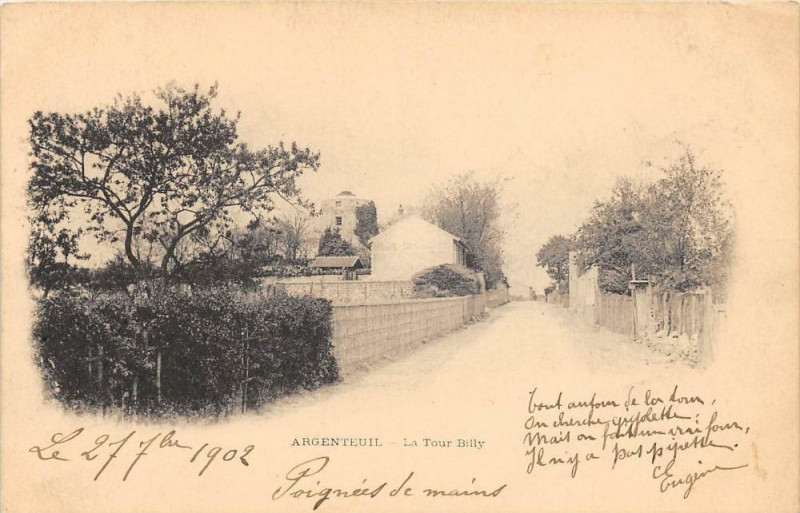 ARGENTEUIL - La Tour Billy
Le 27 7bre 1902
Poignées de mains
Tout autour de la tour,
On cherche
Mais on four,
Il n'y a pas
Eugène